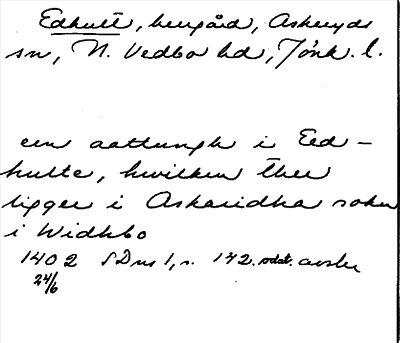 Edhult, herrgård, Askeryds
sn, N. Vedbo hd, Jönk. l.
een aattungh i Eed-
hulte, hwilken ther
ligger i Askaridha sokn
i Widhbo
1402 SDns 1, s. 142. odat. avskr
24/6